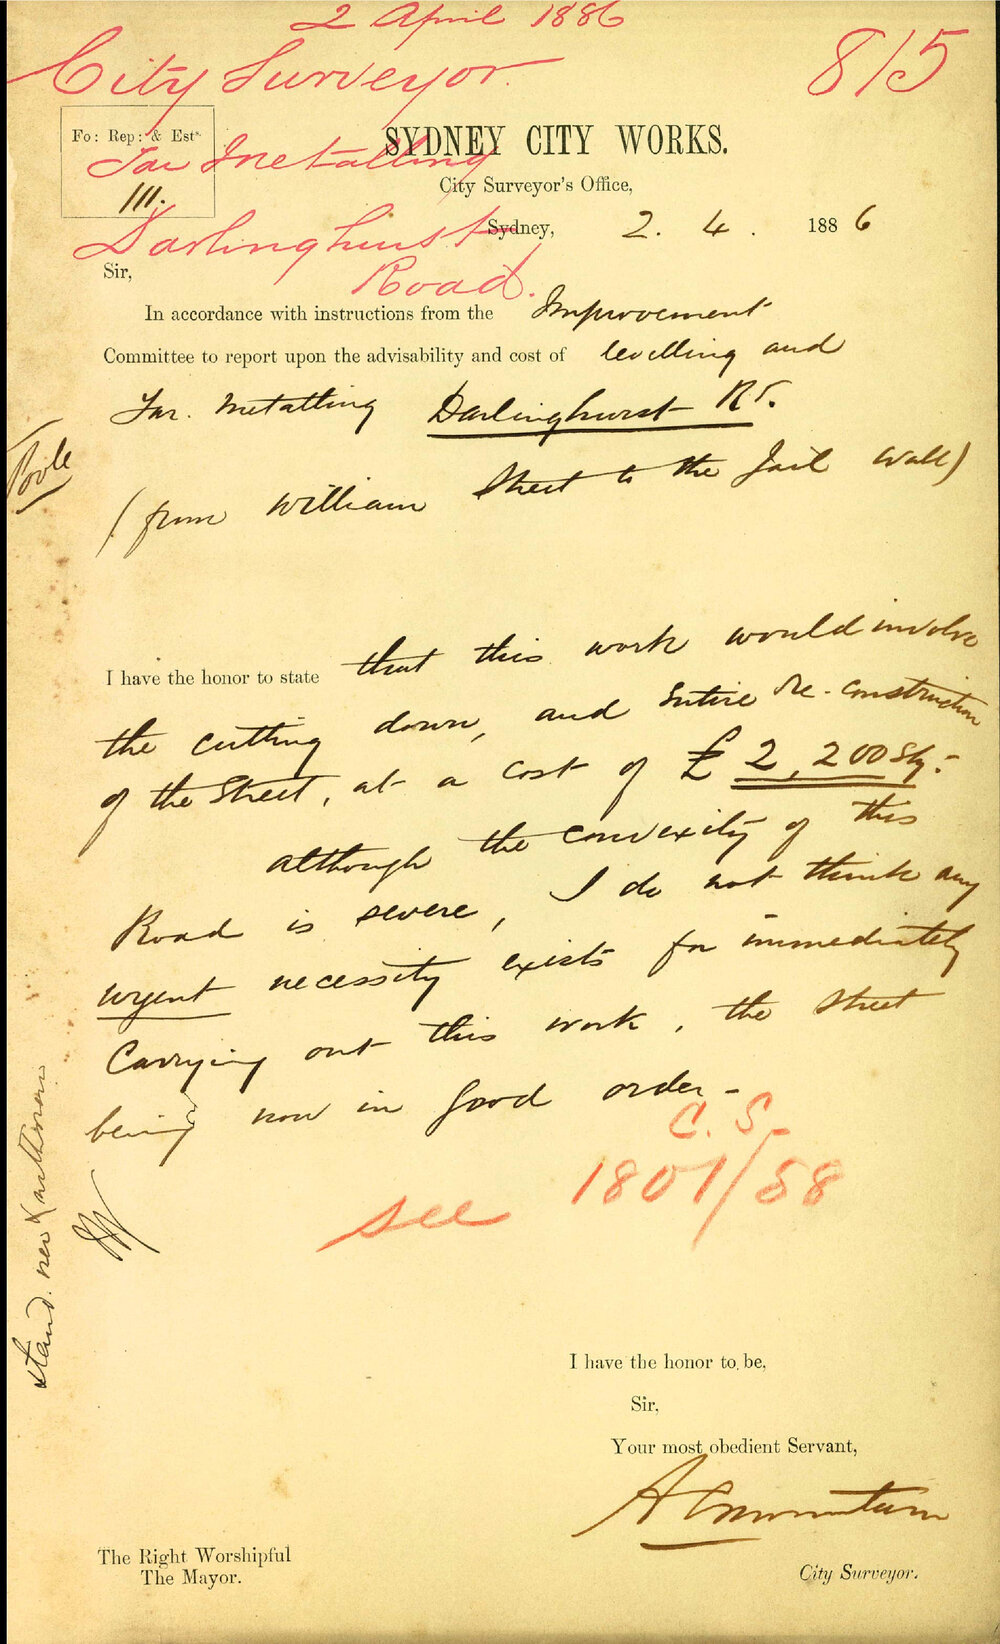 2 April 1886
City Surveyor.
815
Fo: Rep: & Est^s.
111.
Tar Metalling
Darlinghurst
Road.
SYDNEY CITY WORKS.
City Surveyor's Office,
Sydney, 2. 4. 1886
Sir,
In accordance with instructions from the Improvement
Committee to report upon the advisability and cost of levelling and
Tar. Metalling Darlinghurst Rd.
(from William Street to the Jail Wall)
I have the honor to state that this work would involve
the cutting down, and entire re-construction
of the Street, at a cost of £2,200 Stg:-
although the convexity of this
Road is severe, I do not think any
urgent necessity exists for immediately
Carrying out this work, the Street
being now in good order-
C. S.
see 1807/88
I have the honor to be,
Sir,
Your most obedient Servant,
City Surveyor.
The Right Worshipful
The Mayor.